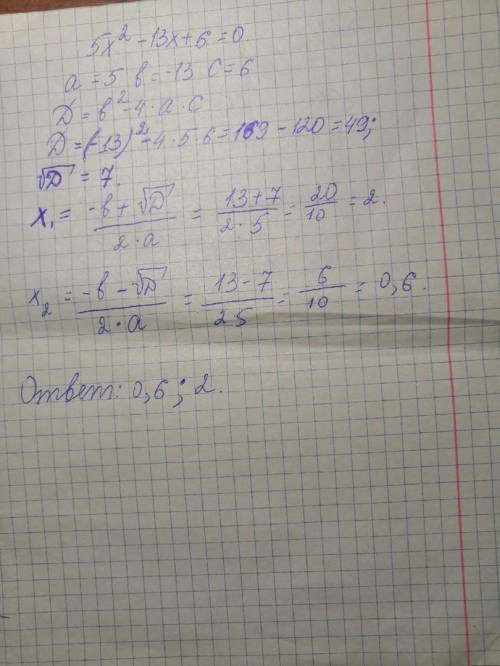 5x² - 13x + 6 = 0
a = 5 в = -13 c = 6
D = в² - 4 · a · c
D = (-13)² - 4 · 5 · 6 = 169 - 120 = 49;
√D = 7.
x₁ = (-в + √D)/(2 · a) = (13 + 7)/(2 · 5) = 20/10 = 2.
x₂ = (-в - √D)/(2 · a) = (13 - 7)/(2 5) = 6/10 = 0,6.
Ответ: 0,6 ; 2.